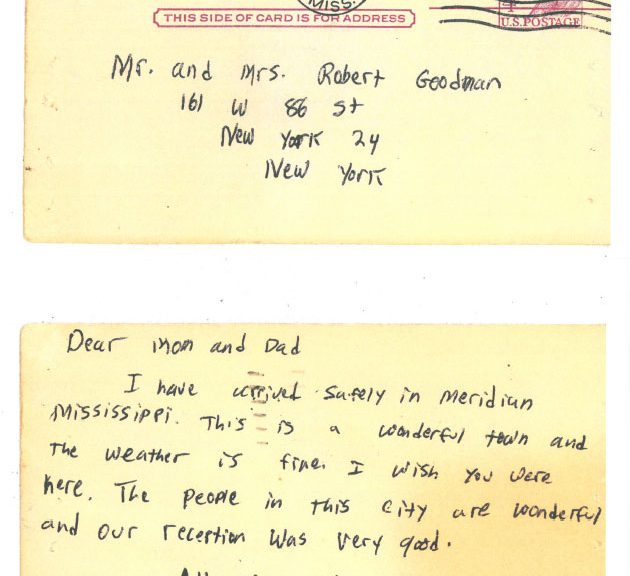 MISS.
THIS SIDE OF CARD IS FOR ADDRESS
U.S. POSTAGE
Mr. and Mrs. Robert Goodman
161 W 86 St
New York 24
New York
Dear Mom and Dad
I have arrived safely in Meridian
Mississippi. This is a wonderful town and
the weather is fine. I wish you were
here. The people in this city are wonderful
and our reception was very good.